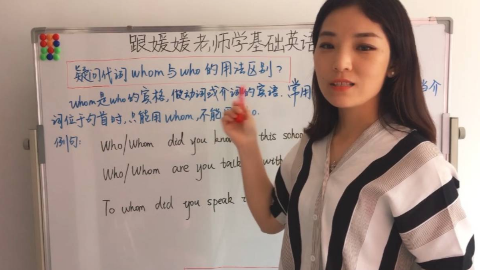 跟媛媛老师学基础英语
疑问代词whom与who的用法区别?
whom是who的宾格,做动词或介词的宾语,常用 当介
词位于句首时,只能用whom,不能用 o.
例句:
Who/Whom did you know this schoo
Who/Whom are you talk with
To whom did you speak